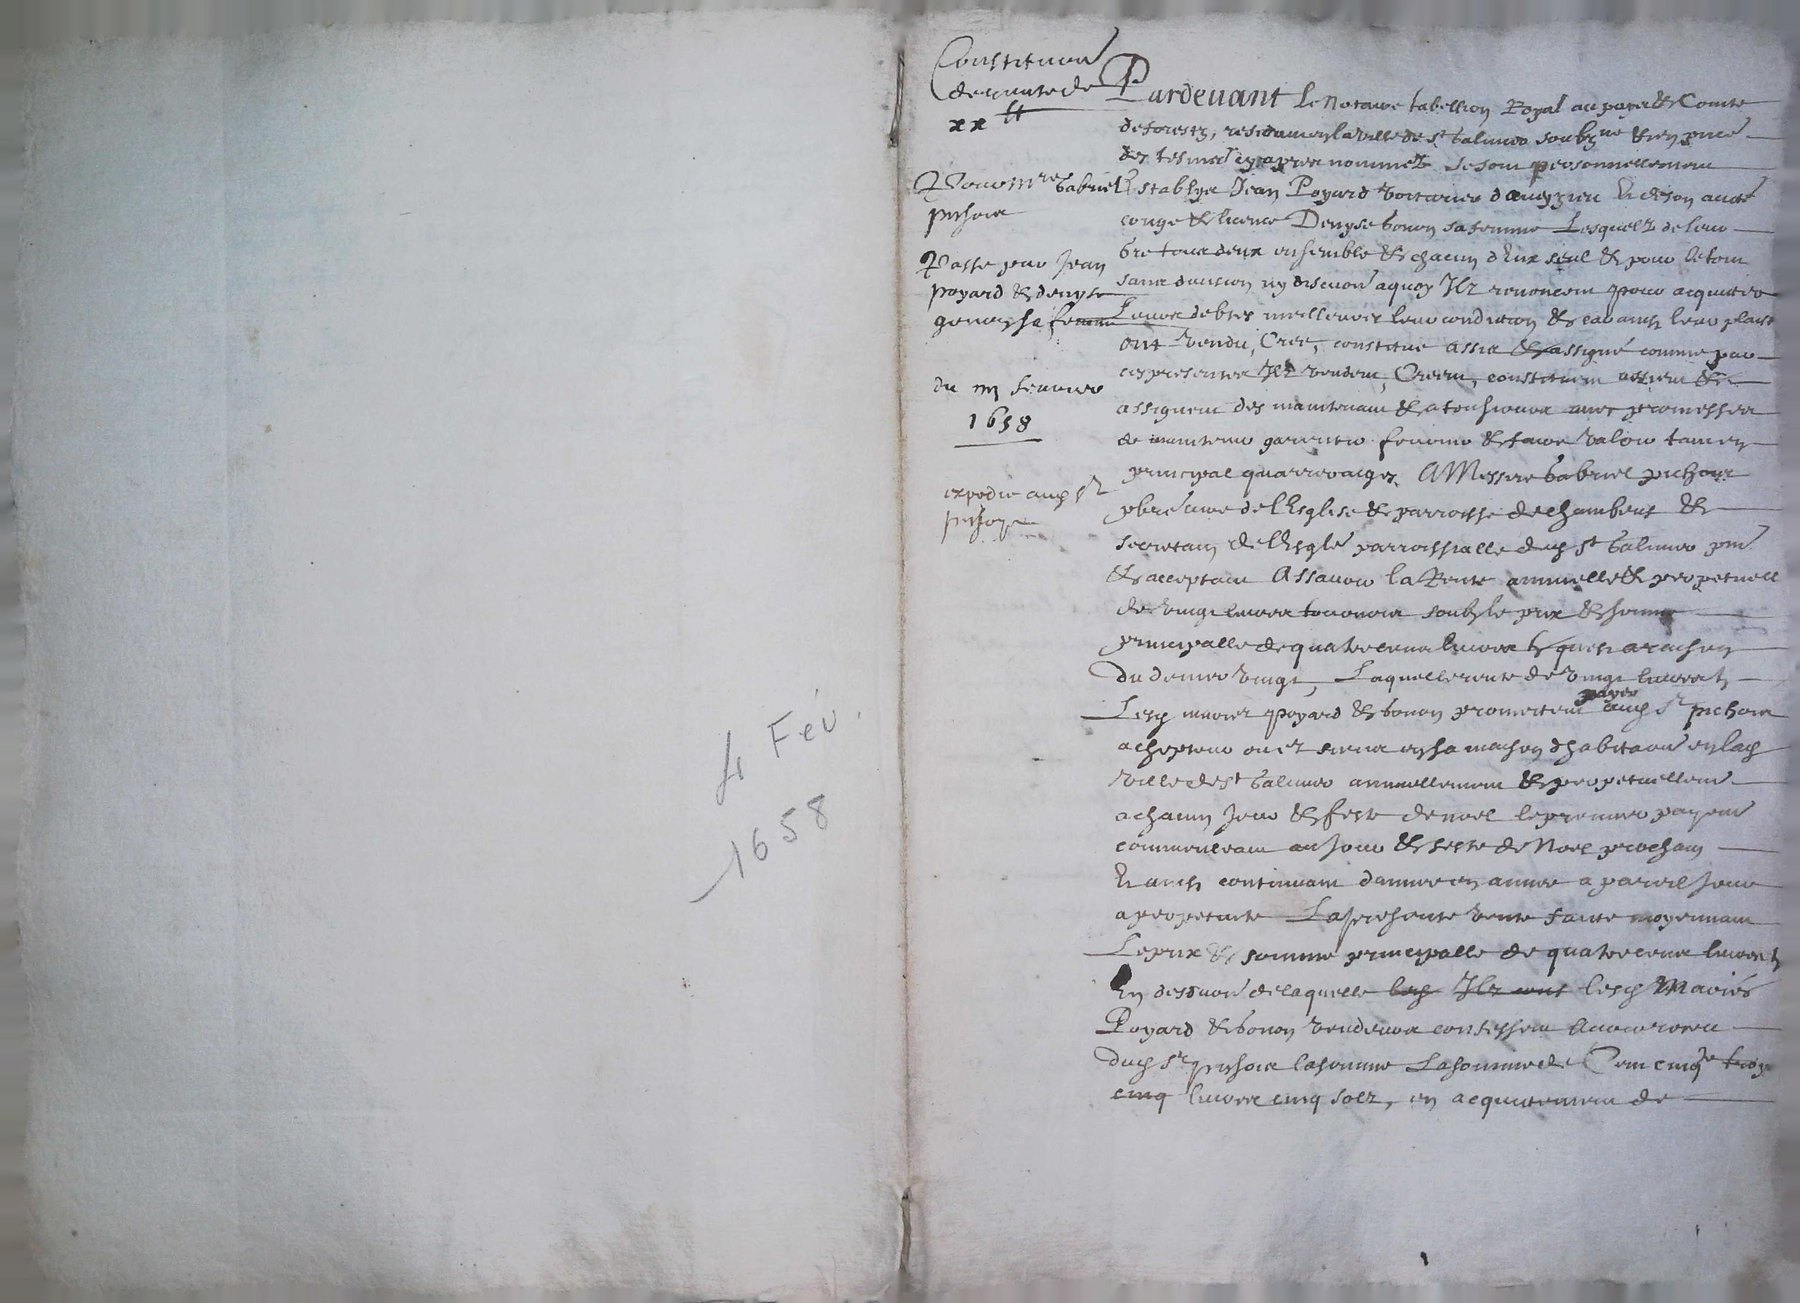 4 Fév.
1658
Constitution
de rente de
xx ₶
Pour Mre Gabriel
pichon
Passe par Jean
poyard & denyse
sa femme
du iiij feuvrier
1658
expedie aud sr
Pardevant le Notaire tabellion Royal au pays & Comte
de forestz, residant en la ville de st Galmier soubzne & en pnce
des tesmoi cy apres nommez se sont personnellement
Establys Jean Poyard voiturier & de son aucte
conge & licence Denyse sa femme Lesquelz de leur
gre tous deux ensemble & chacun d'Eux seul & pour le tout
sans division ny discution a quoy Ilz renoncent pour acquitter
Leurs debtes meilleurer leur condition & car ainsy leur plaist
ont vendu, Cree, constitue assis & assigné comme par
ces presentes Ilz vendent, Creent, constituent assient &
assignent des maintenant & a tousjours avec promesses
de maintenir garentir fournir & faire valoir tant en
principal qu'arreraiges A Messire Gabriel pichon
pbre de l'Esglise & parroisse de chambeuf &
secretain de l'Esglé parrochialle dud st Galmier pnt
& acceptant Assavoir la Rente annuelle & perpetuelle
de vingt livres tournois soubz le prix & somme
principalle de quatre cens livres tz a raison
du denier vingt, Laquelle rente de vingt livres tz
Lesd mariez poyard & promettent payer aud sr pichon
achepteur ou es siens en sa maison d'habitaon en lad
ville de st Galmier annuellement & perpetuellement
a chacun jour & feste de noel le premier payemt
commenceant au jour & feste de Noel prochain
Et ainsy continuant d'annee en annee a pareil jour
a perpetuite La presente vente faite moyennant
Le prix & somme principalle de quatre cens livres tz
En de laquelle lesd Ilz ont lesd Mariés
Poyard & vendeurs confessent avoir receu
dud sr pichon la somme La somme de Cent cinqte
cinq livres cinq solz, en acquittement de